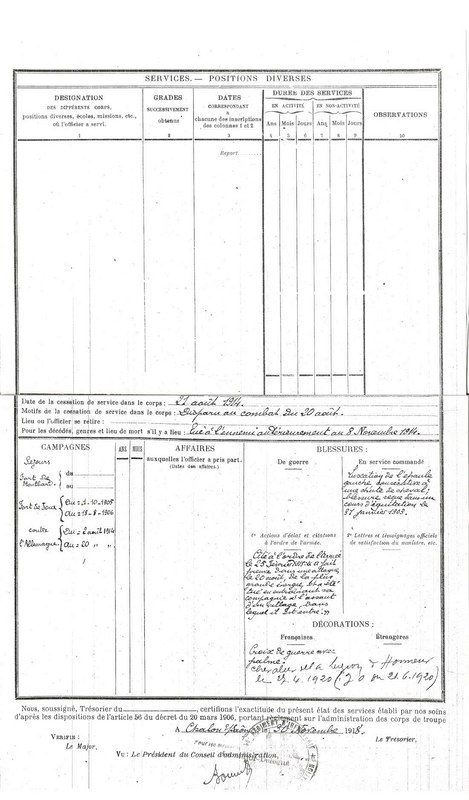 SERVICES. — POSITIONS DIVERSES
DESIGNATION
DES DIFFÉRENTS CORPS,
positions diverses, écoles, missions, etc.,
où l'officier a servi.
1
GRADES
SUCCESSIVEMENT
obtenus
2
DATES
CORRESPONDANT
à
chacune des inscriptions
des colonnes 1 et 2
3
DURÉE DES SERVICES
EN ACTIVITÉ
EN NON-ACTIVITÉ
Ans Mois Jours Ans Mois Jours
4 5 6 7 8 9
OBSERVATIONS
10
Report
Date de la cessation de service dans le corps : 21 août 1914.
Motifs de la cessation de service dans le corps : Disparu au combat du 20 août.
Lieu ou l'officier se retire :
Pour les décédés, genres et lieu de mort s'il y a lieu : tué à l'ennemi antérieurement au 8 Novembre 1914.
CAMPAGNES
ANS MOIS
Séjours
Fort de
du
au
Fort de Joux
Du = 2-10-1905
Au = 13-8-1906
contre
l'Allemagne
Du = 2 août 1914
Au = 20 „ „
AFFAIRES
auxquelles l'officier a pris part.
(Dates des affaires.)
BLESSURES :
De guerre
En service commandé
Luxation de l'épaule
gauche consécutive à
une chute de cheval;
blessure reçue dans un
cours d'équitation le
21 janvier 1903.
1° Actions d'éclat et citations
à l'ordre de l'armée.
2° Lettres et témoignages officiels
de satisfaction du ministre, etc.
Cité à l'ordre de l'armée
le 25 février 1915: « a fait
preuve dans une attaque,
le 20 août, de la plus
grande énergie,
en entraînant sa
compagnie à l'assaut
d'un village, dans
lequel il est entré. »
DÉCORATIONS :
Françaises
Étrangères
Croix de guerre avec
palme.
chevalier de la Legion d'Honneur
1920 (J O du 21.6.1920)
Nous, soussigné, Trésorier du                , certifions l'exactitude du présent état des services établi par nos soins
d'après les dispositions de l'article 56 du décret du 20 mars 1906, portant règlement sur l'administration des corps de troupe
A Chalon s/Saône, le 30 Novembre 1918.
VÉRIFIÉ :
Le Major,
Le Trésorier,
VU : Le Président du Conseil d'administration,